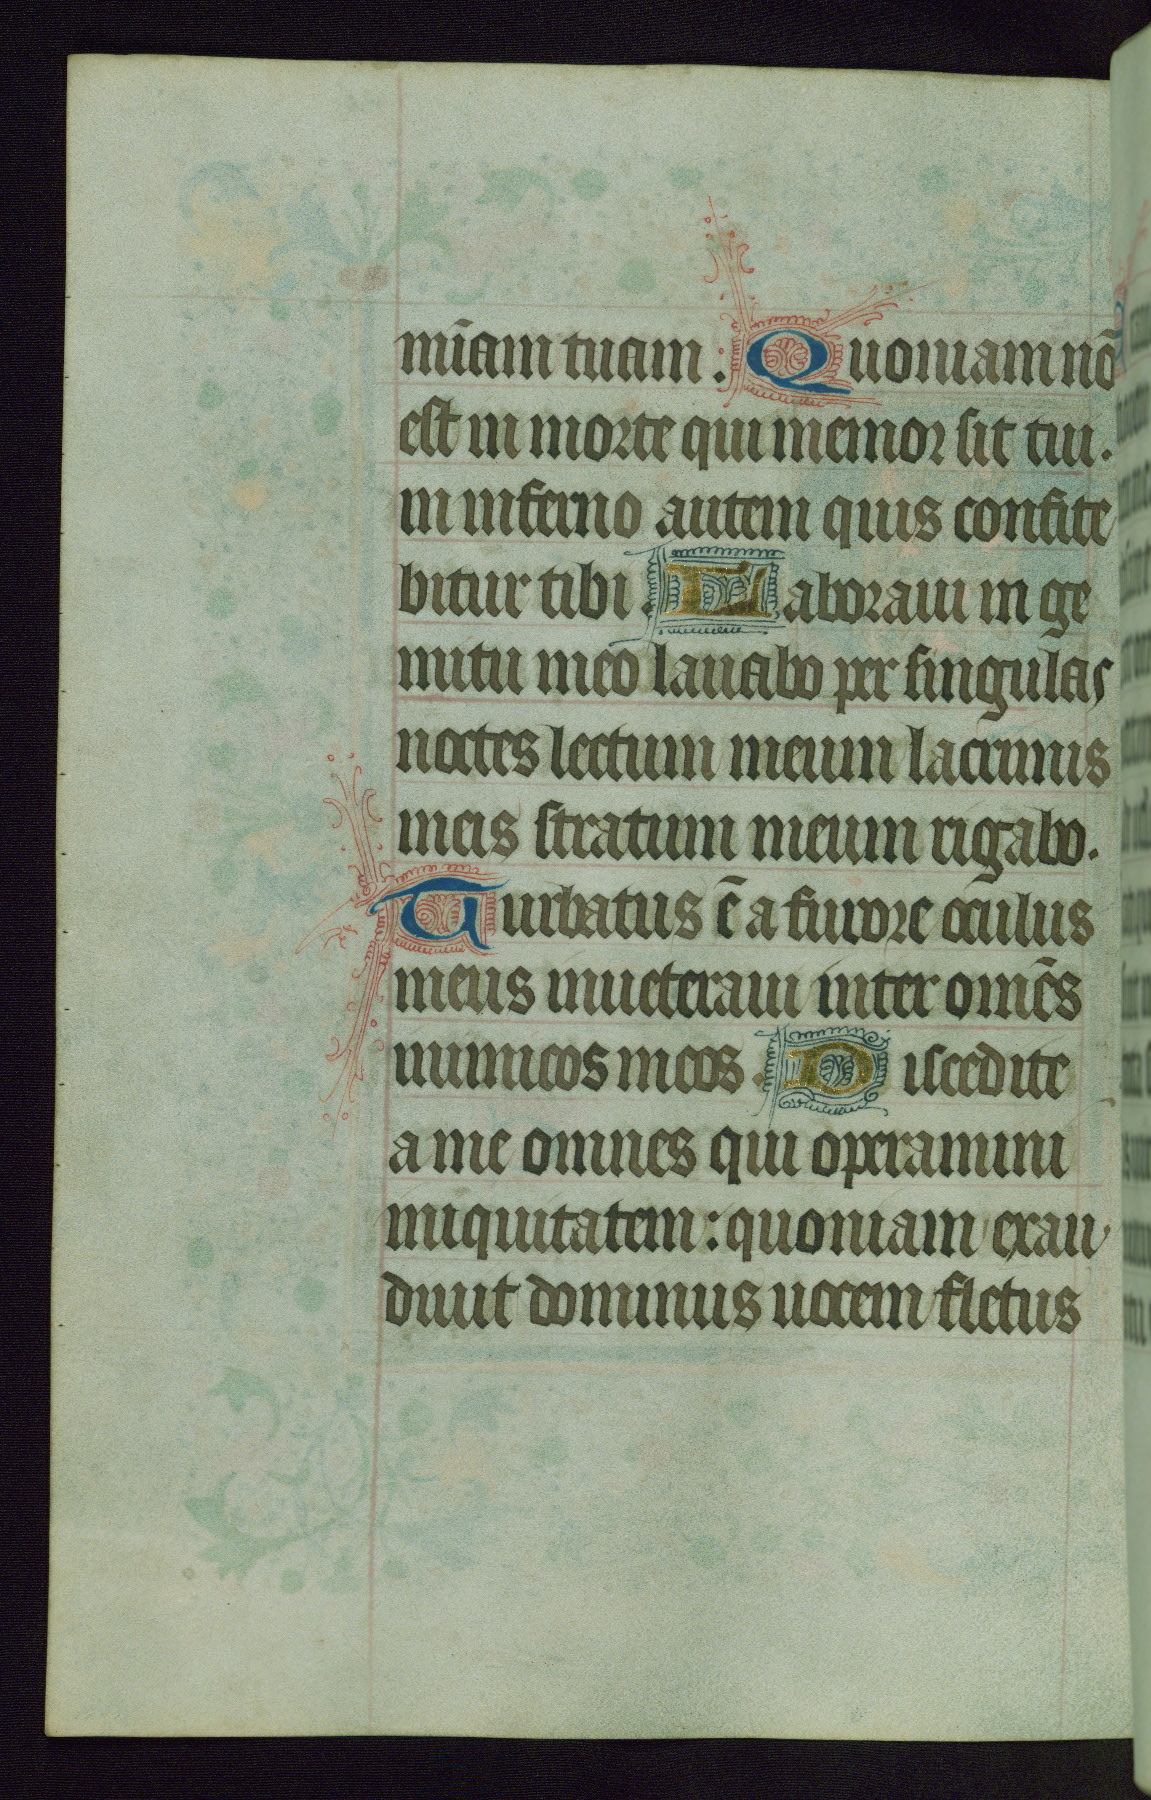 mīam tuam : Quoniam nō
est in morte qui memor sit tui .
in inferno autem quis confite
bitur tibi . Laboraui in ge
mitu meo lauabo per singulas
noctes lectum meum lacrimis
meis stratum meum rigabo .
Turbatus ē a furore oculus
meus inueteraui inter omēs
inimicos meos . Discedite
a me omnes qui operamini
iniquitatem : quoniam exau
diuit dominus uocem fletus